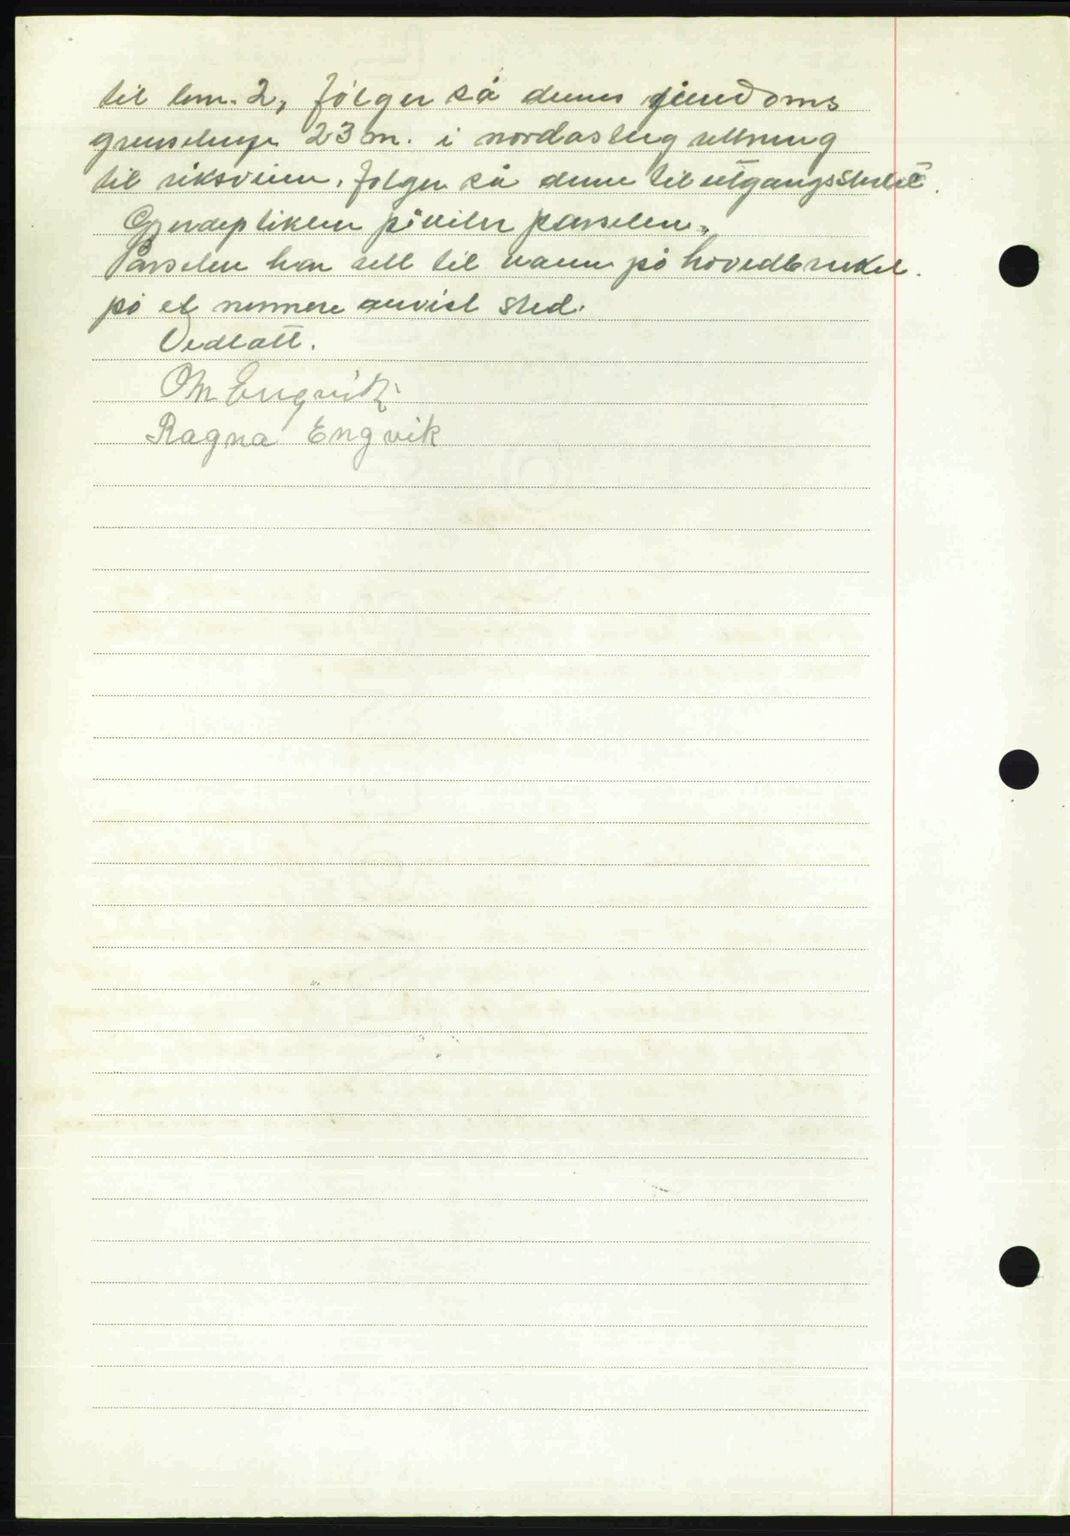 til bnr. 2, følger så dennes eiendoms
grenselinje 23 m. i nordøstlig retning
til riksveien, følger så denne til utgangsstedet.
Gjerdeplikten påhviler parselen.
Parselen har rett til vann på hovedbruket.
på et nermere anvist sted.
Vedtatt.
Engvik
Ragna Engvik